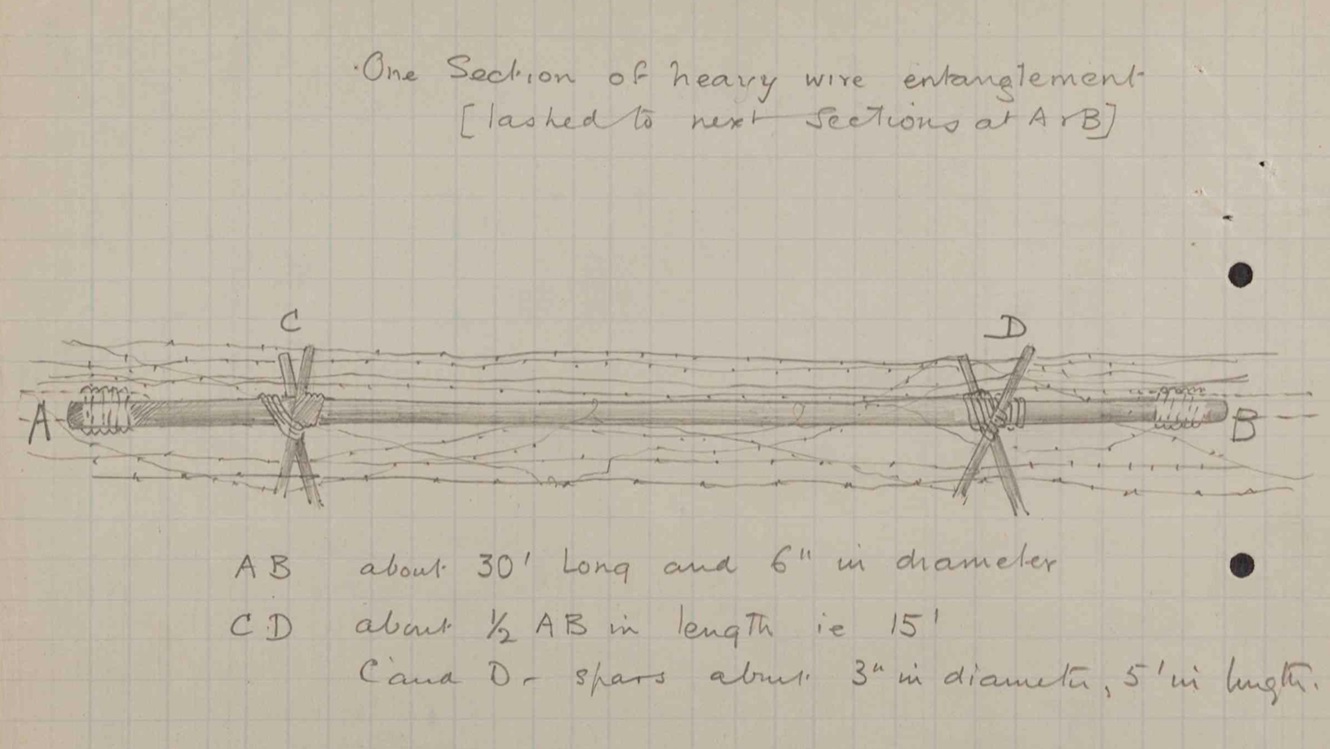 One Section of heavy wire entanglement
[lashed to next sections at A & B]
C D
A B
AB about 30' Long and 6" in diameter
CD about ½ AB in length ie 15'
C and D - spars about 3" in diameter, 5' in length.